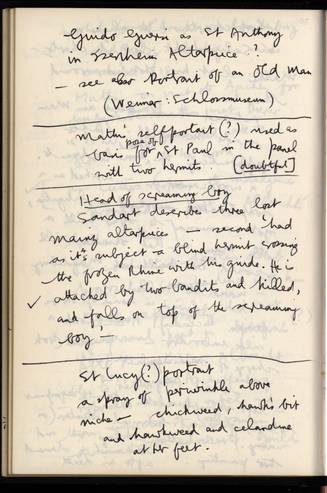 Guido Guersi as St Anthony
in Isenheim Altarpiece ??
— see also Portrait of an Old Man
(Weimar: Schlossmuseum)
Mathis self portrait (?) used as
basis for pose of St Paul in the panel
with two hermits. [doubtful]
Head of screaming boy
Sandart describes three lost
Mainz altarpieces — second 'had
as it's subject a blind hermit crossing
the frozen Rhine with his guide. He is
✓ attacked by two bandits and killed,
and falls on top of the screaming
boy'.
St Lucy (?) portrait
a spray of periwinkle above
niche — chickweed, hawk's bit
and hawkweed and celandine
at her feet.